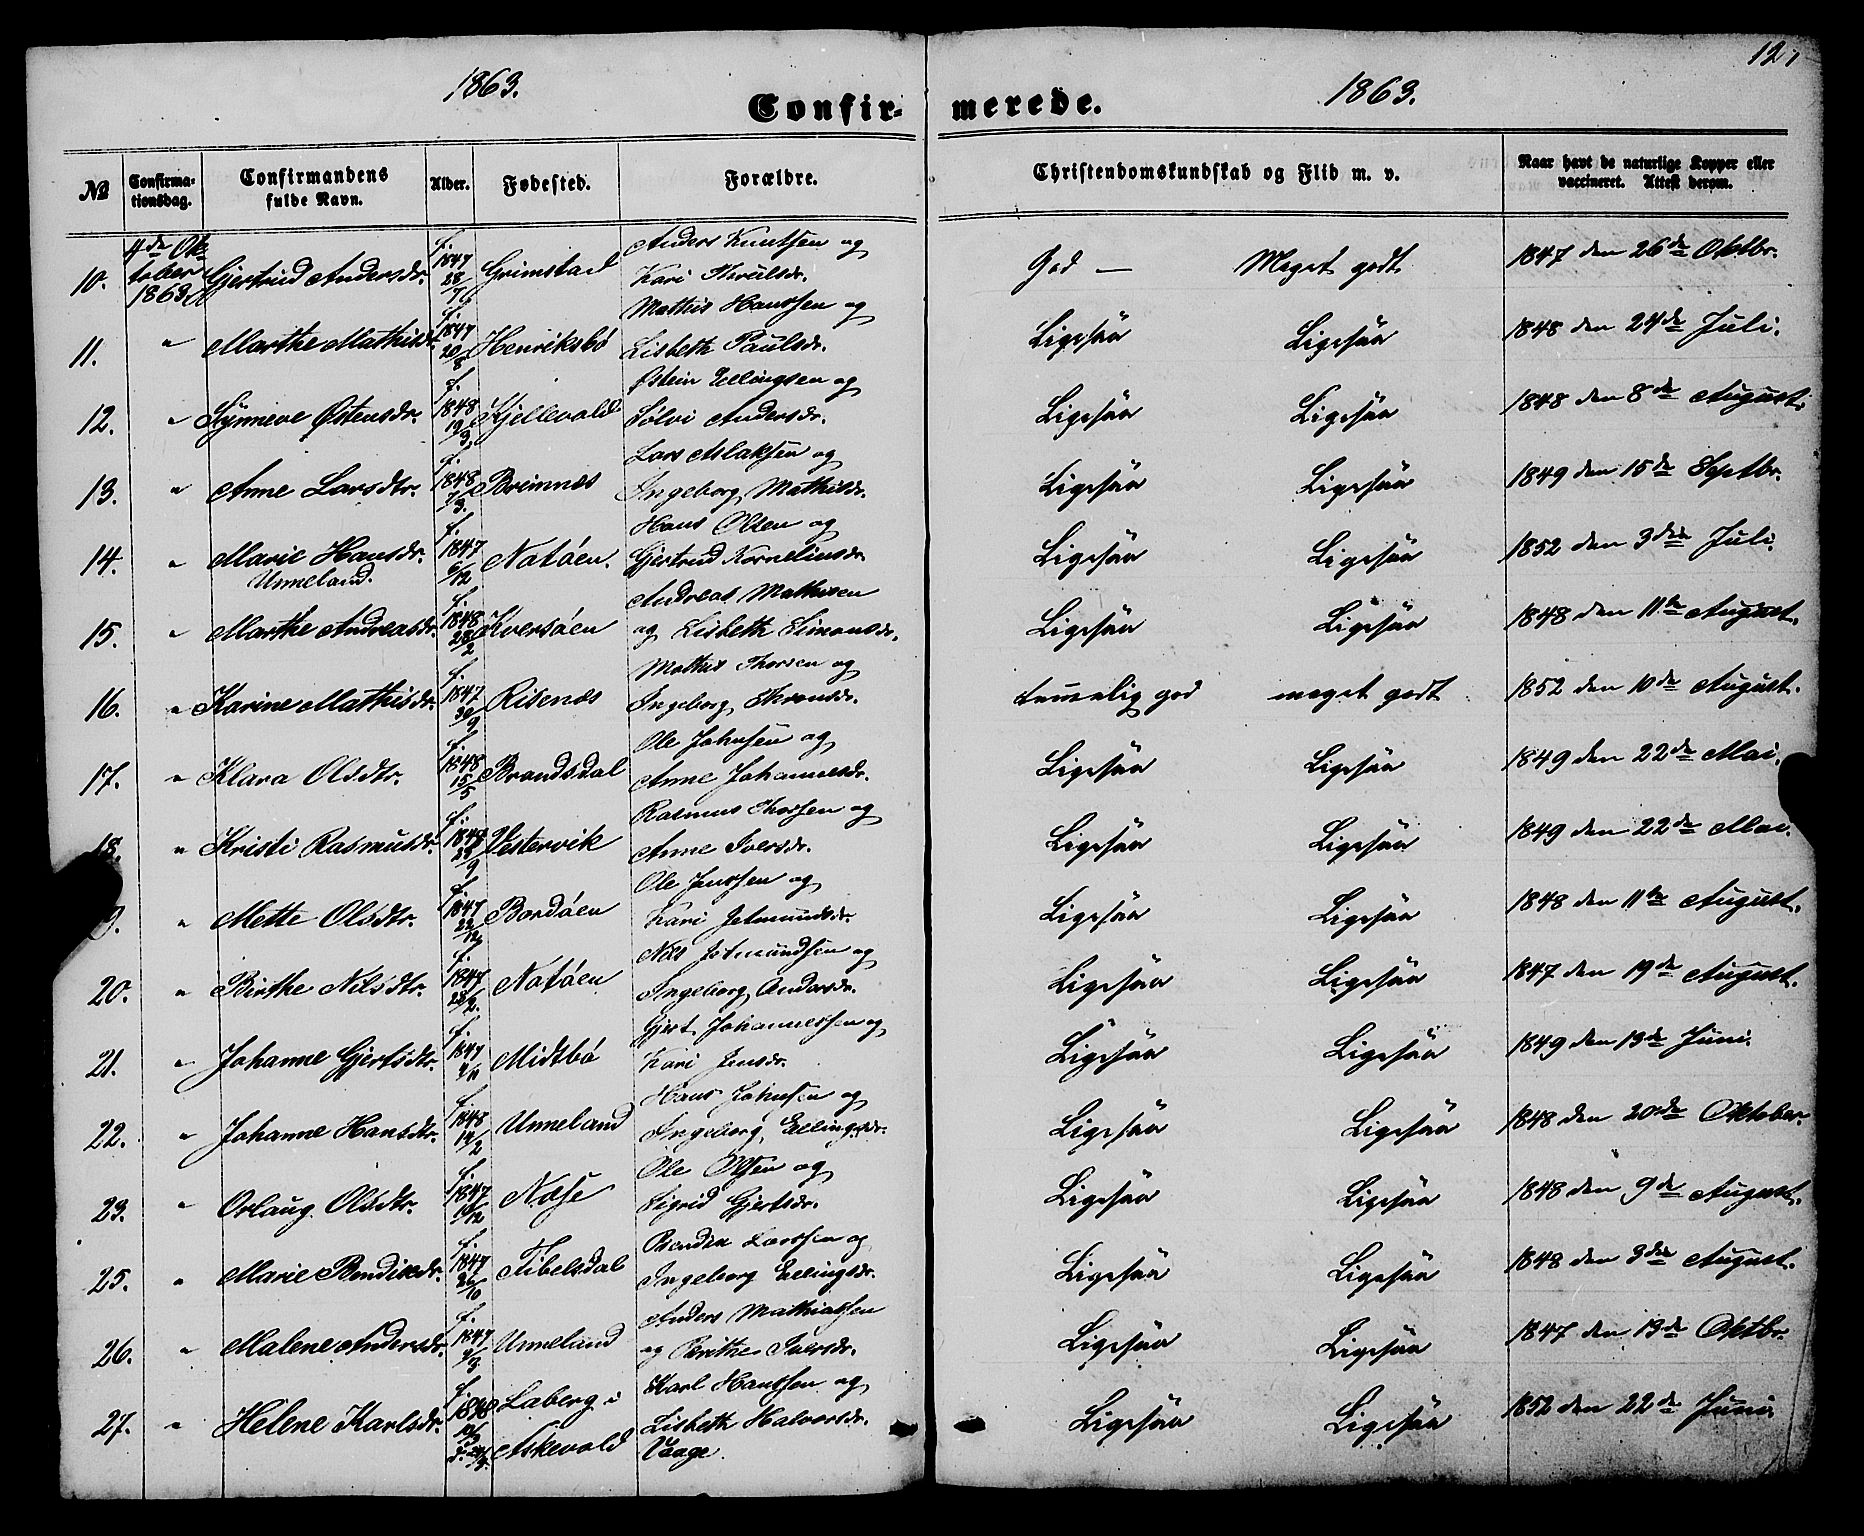 127
1863.
1863.
Confir-
merede.
No
Confirma-
tionsdag.
Confirmandens
fulde Navn.
Alder.
Fødested.
Forældre.
Christendomskundskab og Flid m. v.
Naar havt de naturlige Kopper eller
vaccineret. Attest derom.
4de Ok
tober
1863
10. Gjertrud Andersdr. f. 1847 28/7 Grimstad Anders Knutsen og
Kari
God — Meget godt 1847 den 26de Oktbr.
11. " Marthe Mathisdr. f. 1847 20/8 Henriksbø Mathis Hanssen og
Lisbeth Paulsdr.
Ligesaa Ligesaa 1848 den 24de Juli.
12. " Synneve Østensdr. f. 1848 19/3 Kjellevold Østein Ellingsen og
Sølvi Andersdr.
Ligesaa Ligesaa 1848 den 8de August.
13. " Anne Larsdtr. f. 1848 7/3. Brimnæs Lars Aslaksen og
Ingeborg Mathisdr.
Ligesaa Ligesaa 1849 den 15de Septbr.
14. " Marie Hansdr.
Unneland.
f. 1847 6/12 Natøen. Hans Olsen og
Gjertrud Korneliusdr.
Ligesaa Ligesaa 1852 den 3die Juli.
15. " Marthe Andreasdr. f. 1848 28/2 Kversøen Andreas Mathisen
og Lisbeth Simonsdr.
Ligesaa Ligesaa 1848 den 11te August.
16. " Karine Mathisdr. f. 1847 30/9 Risenæs Mathis Thorsen og
Ingeborg
temmelig god meget godt 1852 den 10de August.
17. " Klara Olsdtr. f. 1848 15/5 Brandsdal Ole Johnsen og
Anne Johannesdr.
Ligesaa Ligesaa 1849 den 22de Mai.
18. " Kristi Rasmusdr. f. Vestervik Rasmus Thorsen og
Anne Iversdr.
Ligesaa Ligesaa 1849 den 22de Mai.
9. " Mette Olsdtr. f. 1847 22/12 Bordøen Ole Janssen og
Kari Jetmundsdr.
Ligesaa Ligesaa 1848 den 11te August.
20. " Birthe Nilsdtr. f. 1847 28/2. Natøen Nils Jetmundsen og
Ingeborg Andersdr.
Ligesaa Ligesaa 1847 den 19de August.
21. " Johanne Gjertsdtr. f. 1847 Midtbø Gjert Johannessen og
Kari Jensdr.
Ligesaa Ligesaa 1849 den 13de Juni.
22. " Johanne Hansdtr. f. 1848 14/2 Unneland Hans Johnsen og
Ingeborg Ellingsdr.
Ligesaa Ligesaa 1848 den 20de Oktober.
23. " Orlaug Olsdtr. f. 1847 Næse Ole Olsen og
Sigrid Gjertsdr.
Ligesaa Ligesaa 1848 den 9de August.
25. " Marie Bendixdr. f. 1847 Tibelsdal Bendix Larssen og
Ingeborg Ellingsdr.
Ligesaa Ligesaa 1848 den 3die August.
26. " Malene Andersdr. f. 1847 Unneland Anders Mathiassen
og Berithe Iversdr.
Ligesaa Ligesaa 1847 den 13de Oktbr.
27. " Helene Karlsdr. f. Laberg i
Askevold
Karl Hanssen og
Lisbeth Halvorsdr.
Vaage.
Ligesaa Ligesaa 1852 den 22de Juni.